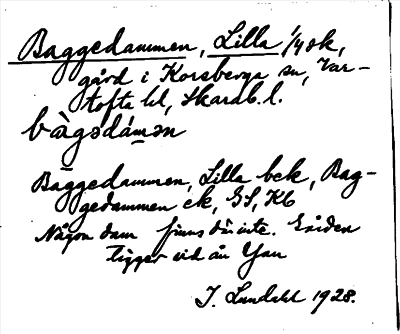 Baggedammen, Lilla 1/4 sk,
gård i Korsberga sn, Var-
tofta hd, Skarab. l.
bàgədámən
Baggedammen, Lilla bck, Bag-
gedammen ek, GS, Kb
Någon dam finns där inte. Gården
ligger vid ån Yan
J. Lundahl 1928.